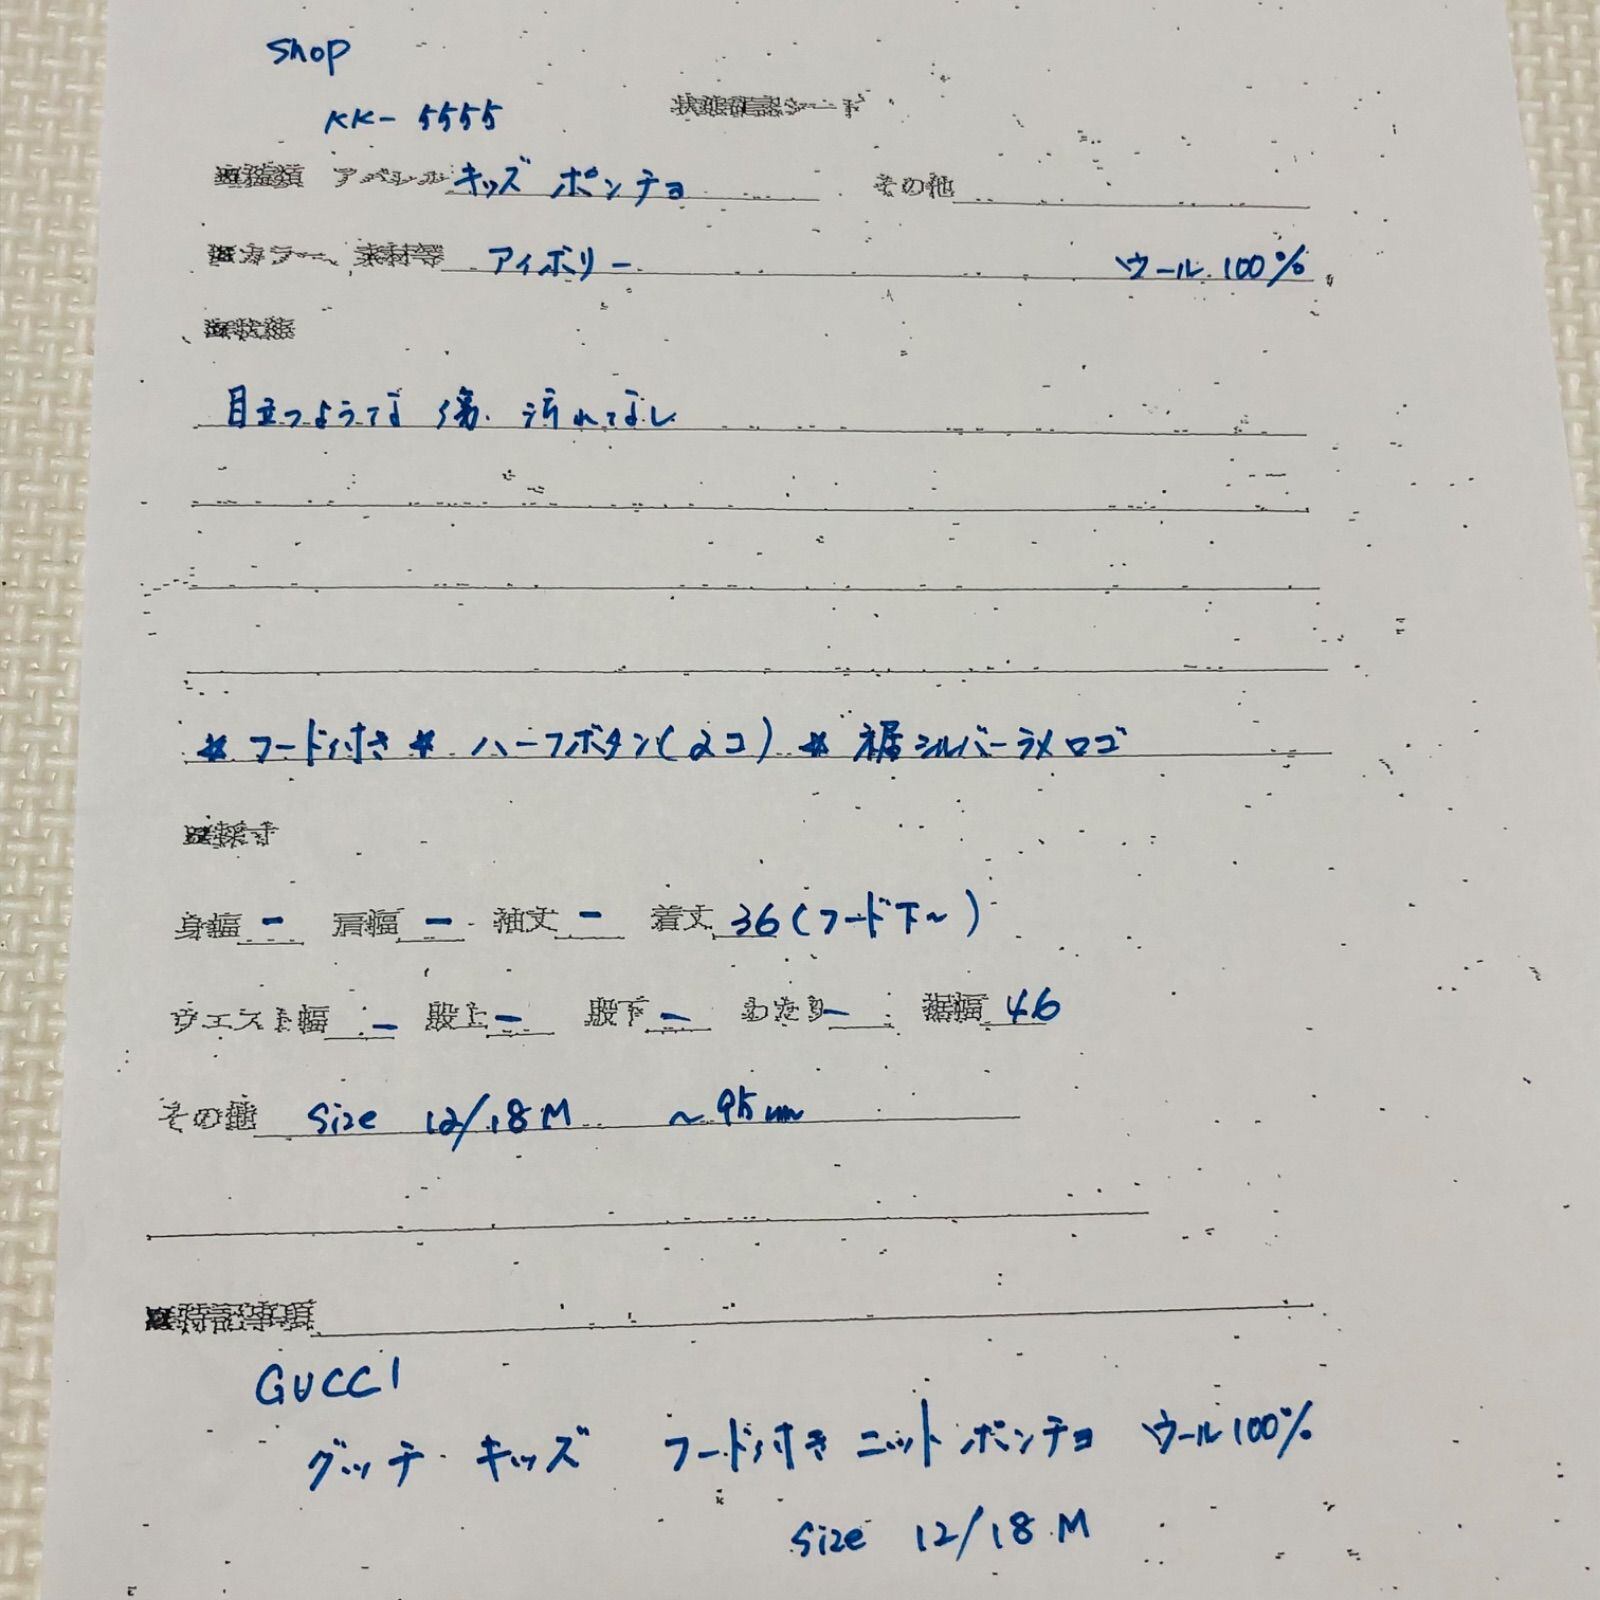 shop
KK-5555 状態確認シート
■種類 アパレル キッズ ポンチョ その他
■カラー、素材等 アイボリー ウール 100%
■状態
目立つような傷、汚れなし
*フード付き * ハーフボタン(2コ) * 裾シルバーラメロゴ
■採寸
身幅 - 肩幅 - 袖丈 - 着丈 36(フード下~)
ウエスト幅 - 股上 - 股下 - わたり - 裾幅 46
その他 Size 12/18M ~95cm
■特記事項
GUCCI
グッチ・キッズ フード付き ニットポンチョ ウール100%
Size 12/18M